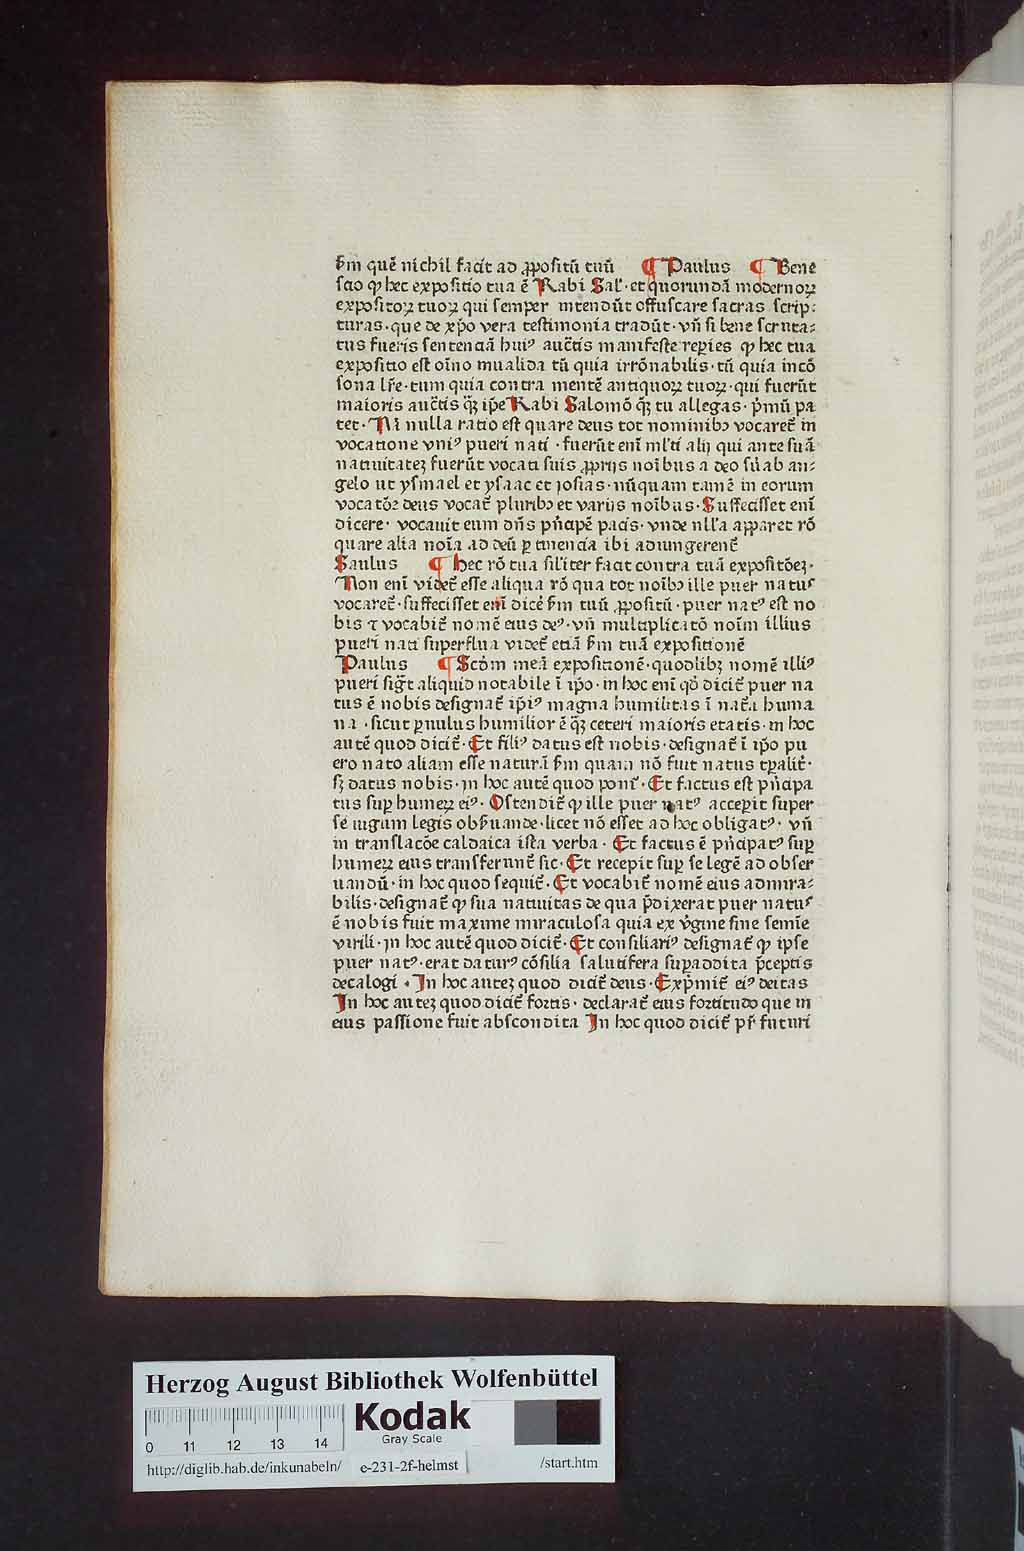 ẜm quē nichil facit ad ꝓpositū tuū ¶ Paulus ¶ Bene
scio ꝙ hec expositio tua ē Rabi Sal'· et quorundā modernoꝝ
expositoꝝ tuoꝝ qui semper intendūt offuscare sacras scrip⸗
turas· que de xp̄o vera testimonia tradūt· vn̄ si bene scruta⸗
tus fueris sentenciā huiꝰ auctīs manifeste repies ꝙ hec tua
expositio est oīno inualida tū quia irrōnabilis· tū quia incō
sona lr̄e· tum quia contra mentē antiquoꝝ tuoꝝ· qui fuerūt
maioris auctīs qȝ ip̄e Rabi Salomō qȝ tu allegas· p̄mū pa
tet· Nā nulla ratio est quare deus tot nominibꝫ vocaret̄ in
vocatione vniꝰ pueri nati · fuerūt enī ml'ti alij qui ante suā
natiuitateȝ fuerūt vocati suis ꝓprijs noībus a deo siū ab an⸗
gelo ut ysmael et ysaac et josias· nūquam tamē in eorum
vocatōe deus vocat̄ pluribꝫ et varijs noībus· Suffecisset enī
dicere · vocauit eum dn̄s p̄ncipē pacis· vnde nll'a apparet rō
quare alia noīa ad deū ꝑtinencia ibi adiungerent̄
Saulus ¶ hec rō tua sil'iter facit contra tuā expositōeȝ·
Non enī videt̄ esse aliqua rō qua tot noībꝫ ille puer natus
vocaret̄· suffecisset enī dicē ẜm tuū ꝓpositū · puer natꝰ est no
bis ⁊ vocabit̄ nomē eius deꝰ· vn̄ multiplicatō noīm illius
pueri nati superflua videt̄ etiā ẜm tuā expositionē
Paulus ¶ Scōm meā expositionē· quodlibȝ nomē illiꝰ
pueri sigt̄ aliquid notabile ī ip̄o· in hoc enī qd̄ dicit̄ puer na
tus ē nobis designat̄ ip̄iꝰ magna humilitas ī nat̄a huma
na · sicut ꝑuulus humilior ē qȝ ceteri maioris etatis· in hoc
autē quod dicit̄· Et filiꝰ datus est nobis· designat̄ ī ip̄o pu
ero nato aliam esse naturā ẜm quam nō fuit natus tꝑalit̄·
sȝ datus nobis· in hoc autē quod ponit̄· Et factus est p̄ncipa
tus suꝑ humeꝝ eiꝰ· Ostendit̄ ꝙ ille puer natꝰ acceperit super
se iugum legis obẜuande· licet nō esset ad hoc obligatꝰ· vn̄
in translacōe caldaica ista verba· Et factus ē p̄ncipatꝰ suꝑ
humeꝝ eius transferunt̄ sic· Et recepit suꝑ se legē ad obser
uandū· in hoc quod sequit̄· Et vocabit̄ nomē eius admira⸗
bilis· designat̄ ꝙ sua natiuitas de qua p̄dixerat puer natus
ē nobis fuit maxime miraculosa quia ex v̄gine sine semīe
virili· jn hoc autē quod dicit̄· Et consiliariꝰ designat̄ ꝙ ipse
puer natꝰ· erat daturꝰ cōsilia salutifera suꝑaddita p̄ceptis
decalogi · In hoc auteȝ quod dicit̄ deus· Exp̄mit̄ eiꝰ deitas
In hoc auteȝ quod dicit̄ fortis· declarat̄ eius fortitudo que in
eius passione fuit abscondita In hoc quod dicit̄ pr̄ futuri
Herzog August Bibliothek Wolfenbüttel
Kodak
Gray Scale
0 11 12 13 14
http://diglib.hab.de/inkunabeln/ e-231-2f-helmst /start.htm